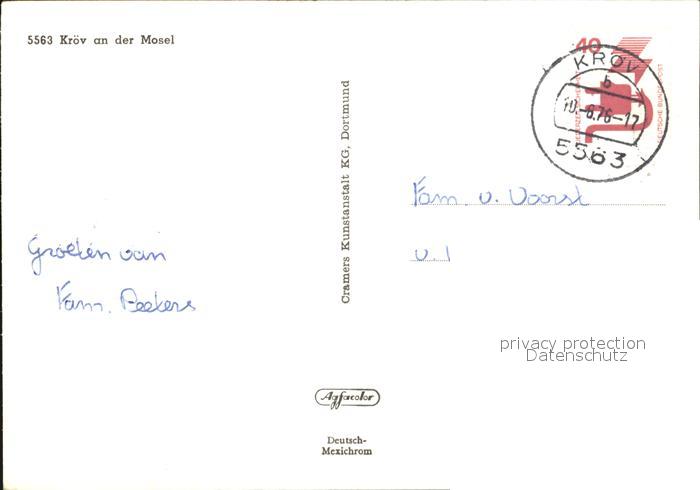 5563 Kröv an der Mosel
40
DEUTSCHE BUNDESPOST
KRÖV
b
10.-6.76-17
5563
Cramers Kunstanstalt KG, Dortmund
Fam. v. Voorst
v. l
Groeten van
Fam. Peeters
privacy protection
Datenschutz
Agfacolor
Deutsch-
Mexichrom